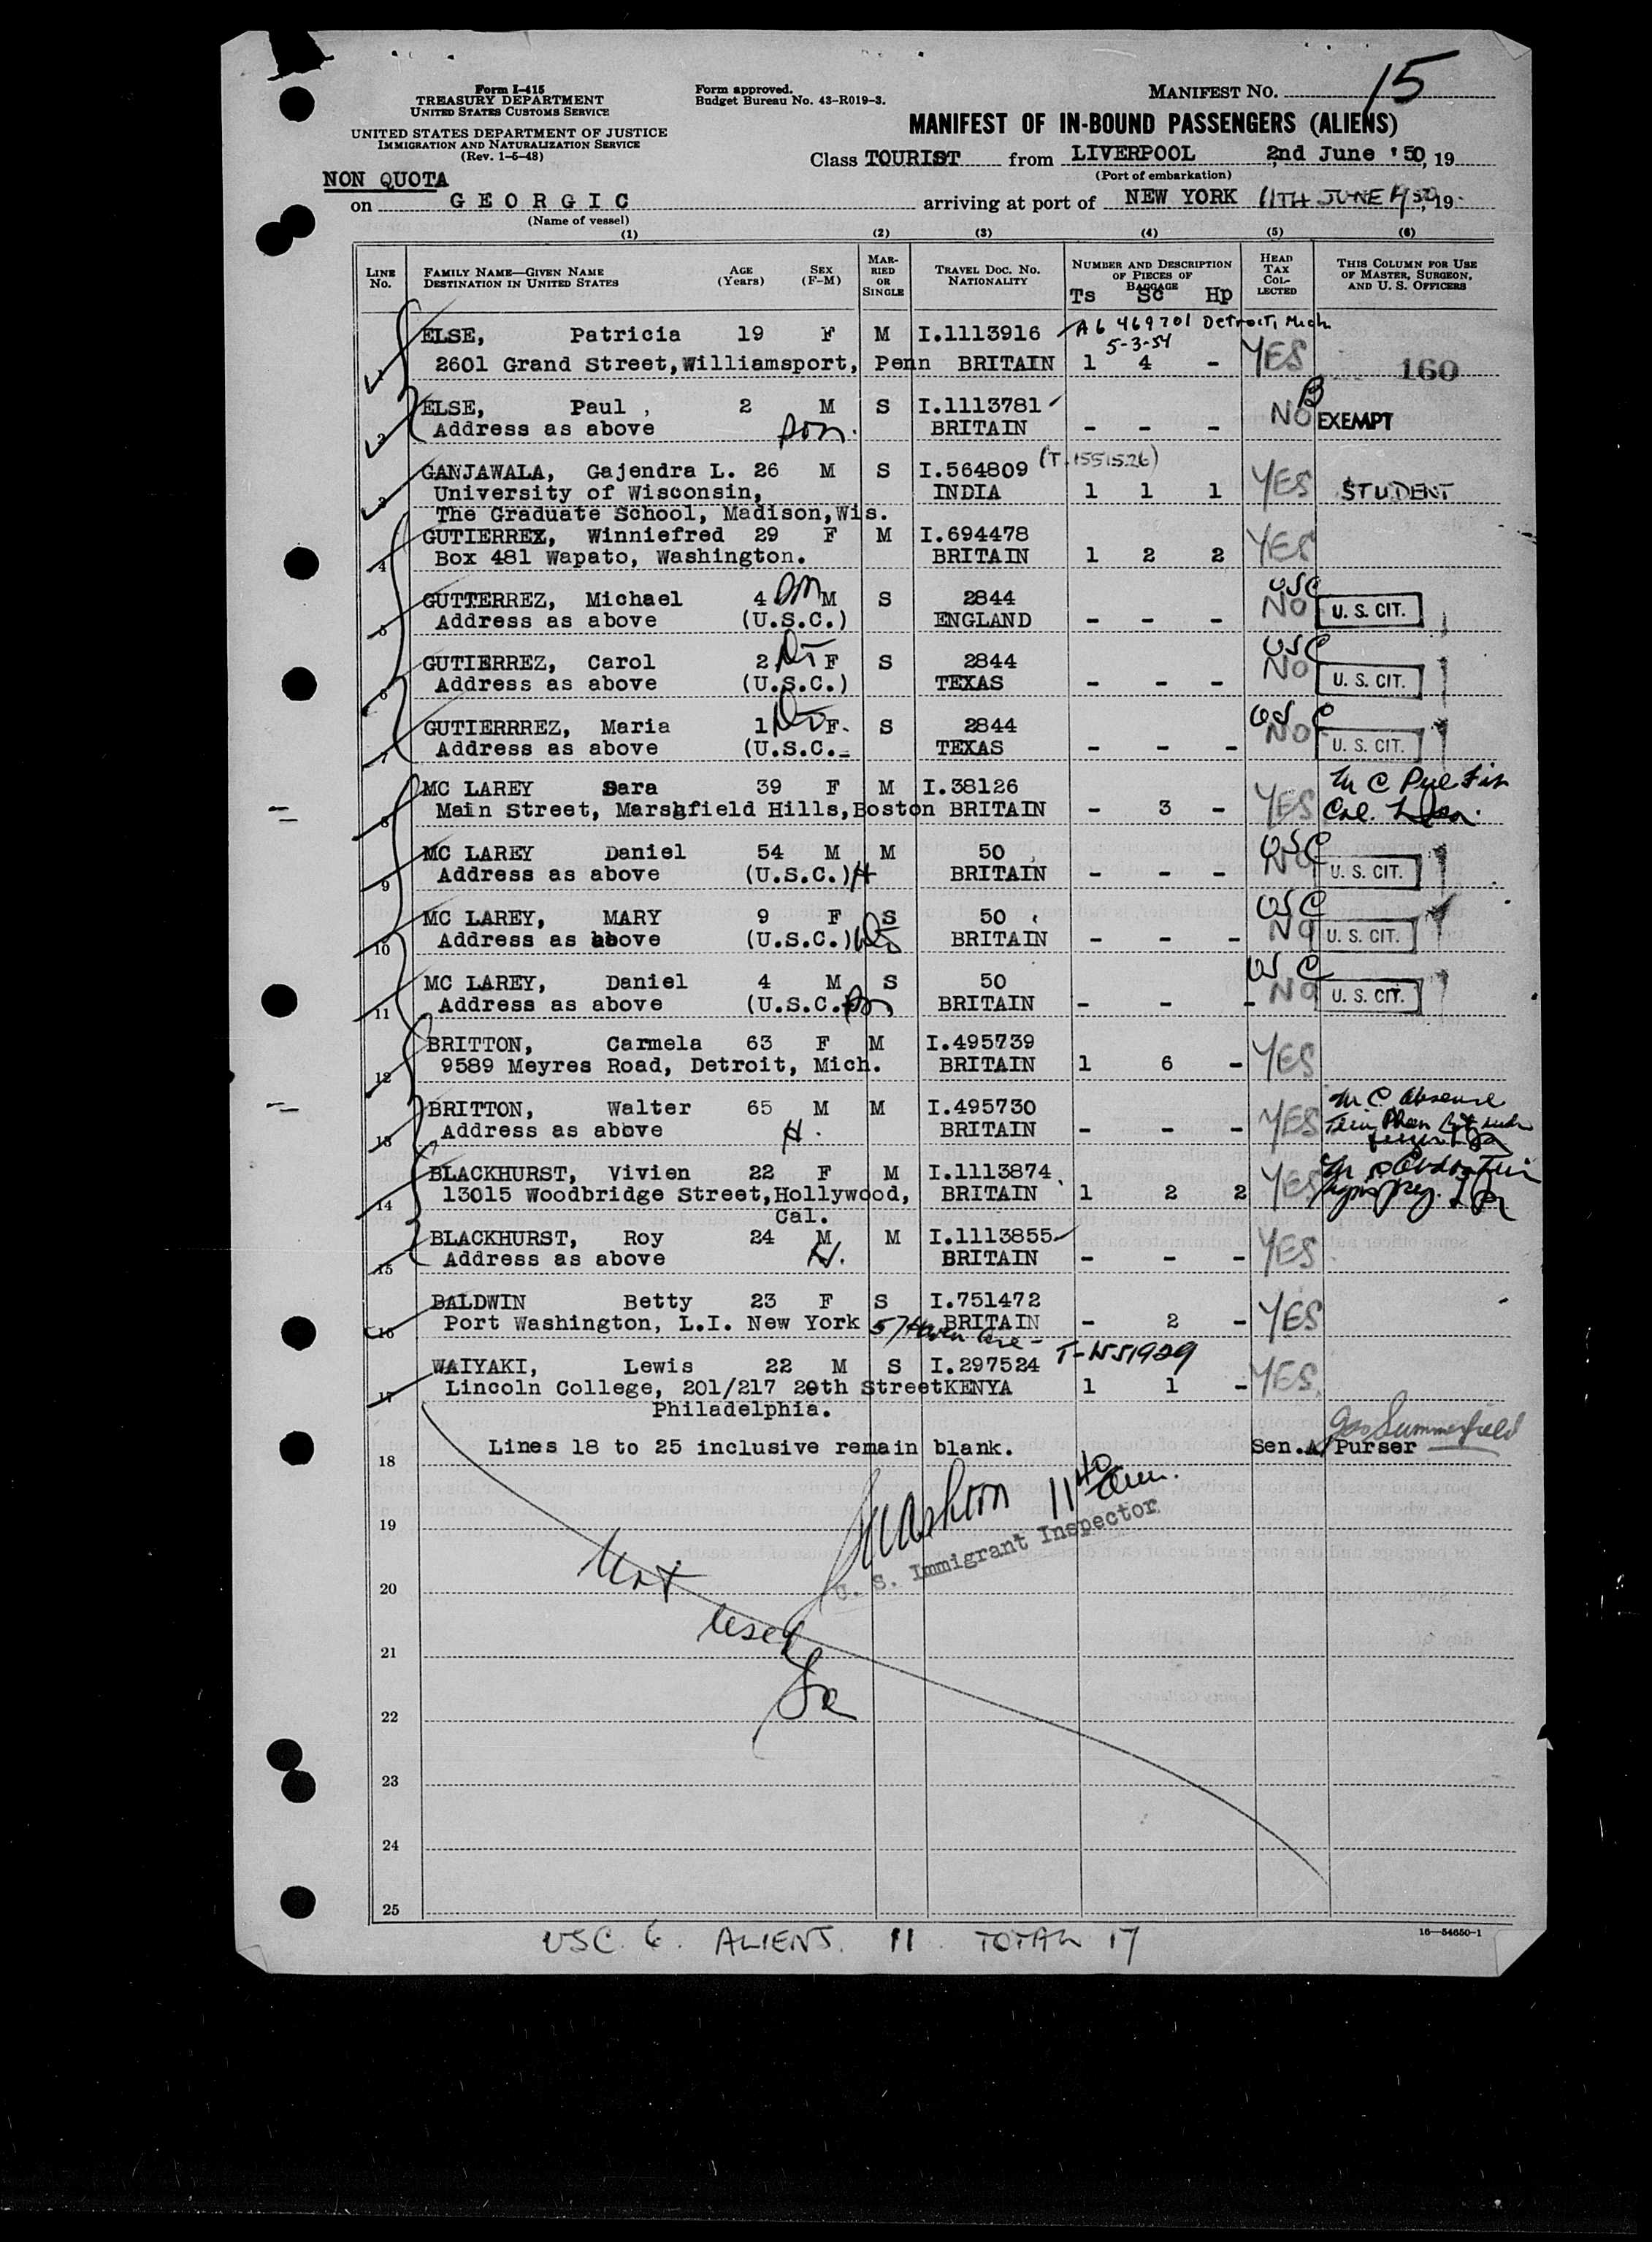 Form I-415
TREASURY DEPARTMENT
UNITED STATES CUSTOMS SERVICE
UNITED STATES DEPARTMENT OF JUSTICE
IMMIGRATION AND NATURALIZATION SERVICE
(Rev. 1-5-48)
Form approved.
Budget Bureau No. 43-R019-3.
MANIFEST NO. 15
MANIFEST OF IN-BOUND PASSENGERS (ALIENS)
Class TOURIST from LIVERPOOL 2nd June '50, 19
(Port of embarkation)
NON QUOTA
on GEORGIC arriving at port of NEW YORK 11TH JUNE 1950, 19
(Name of vessel)
(1) (2) (3) (4) (5) (6)
LINE No. FAMILY NAME—GIVEN NAME DESTINATION IN UNITED STATES AGE (Years) SEX (F-M) MARRIED OR SINGLE TRAVEL DOC. NO. NATIONALITY NUMBER AND DESCRIPTION OF PIECES OF BAGGAGE HEAD TAX COLLECTED THIS COLUMN FOR USE OF MASTER, SURGEON, AND U. S. OFFICERS
Ts Sc Hp
ELSE, Patricia 19 F M I.1113916 A6 469701 Detroit, Mich
5-3-54
1 2601 Grand Street,Williamsport, Penn BRITAIN 1 4 - YES 160
ELSE, Paul , 2 M S I.1113781 NO B EXEMPT
2 Address as above son. BRITAIN - - -
GANJAWALA, Gajendra L. 26 M S I.564809 (T.1551526)
3 University of Wisconsin, INDIA 1 1 1 YES STUDENT
The Graduate School, Madison,Wis.
GUTIERREZ, Winniefred 29 F M I.694478 YES
4 Box 481 Wapato, Washington. BRITAIN 1 2 2
GUTTERREZ, Michael 4 M S 2844 USC NO U. S. CIT.
5 Address as above (U.S.C.) ENGLAND - - -
GUTIERREZ, Carol 2 F S 2844 USC NO U. S. CIT.
6 Address as above (U.S.C.) TEXAS - - -
GUTIERRREZ, Maria 1 F. S 2844 USC NO U. S. CIT.
7 Address as above (U.S.C. TEXAS - - -
MC LAREY Sara 39 F M I.38126
8 Main Street, Marshfield Hills,Boston BRITAIN - 3 - YES
MC LAREY Daniel 54 M M 50 USC NO U. S. CIT.
9 Address as above (U.S.C.) H BRITAIN - - -
MC LAREY, MARY 9 F S 50 USC NO U. S. CIT.
10 Address as above (U.S.C.) BRITAIN - - -
MC LAREY, Daniel 4 M S 50 USC NO U. S. CIT.
11 Address as above (U.S.C. BRITAIN - - -
BRITTON, Carmela 63 F M I.495739
12 9589 Meyres Road, Detroit, Mich. BRITAIN 1 6 - YES
BRITTON, Walter 65 M M I.495730
13 Address as above H. BRITAIN - - - YES
BLACKHURST, Vivien 22 F M I.1113874
14 13015 Woodbridge Street,Hollywood, BRITAIN 1 2 2 YES
Cal.
BLACKHURST, Roy 24 M M I.1113855
15 Address as above H. BRITAIN - - - YES
BALDWIN Betty 23 F S I.751472
16 Port Washington, L.I. New York 57 Haven Ave - BRITAIN - 2 - YES
WAIYAKI, Lewis 22 M S I.297524 T-1551929
17 Lincoln College, 201/217 20th Street KENYA 1 1 - YES
Philadelphia.
Summerfield
18 Lines 18 to 25 inclusive remain blank. Sen.A/Purser
11 40 am.
19 U. S. Immigrant Inspector
20 Not
21 used
22
23
24
25
16—54650-1
USC. 6. ALIENS. 11. TOTAL 17